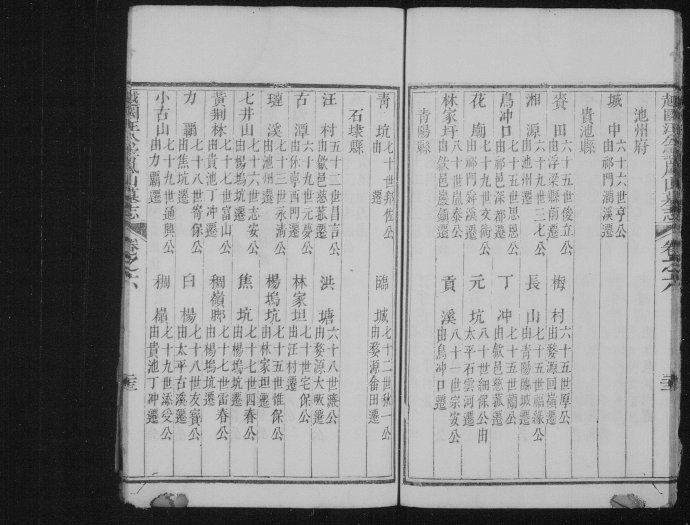 池州府
城中 六十六世亨公 由祁門潤溪遷
貴池縣
賚田 六十五世後立公 由浮梁縣前遷
梅村 六十五世厚公 由婺源回嶺遷
湘源 六十九世三七公 由池州遷
長山 七十五世福緣公 由青陽臨城遷
烏冲口 七十五世思恩公 由祁邑深都遷
丁冲 七十五世蘭公 由歙邑慈菰遷
花廟 七十九世交術公 由祁門舜溪遷
元坑 八十世細保公由 太平石雲河遷
林家圩 八十世嵐泰公 由歙邑嚴鎮遷
貢溪 八十一世宗安公 由烏冲口遷
青陽縣
青坑 七十世公 遷
臨城 七十二世秋一公 由婺源畬田遷
石埭縣
汪村 五十二世昌言公 由歙邑慈菰遷
洪塘 六十八世濂公 由婺源大畈遷
古潭 六十九世元夢公 由休寧西門遷
林家坦 七十世宅保公 由汪村遷
璉溪 七十三世永清公 由池州遷
楊塢坑 七十五世雄保公 由林家坦遷
七井山 七十六世志安公 由楊塢坑遷
焦坑 七十七世四春公 由楊塢坑遷
黃荊林 七十七世富山公 由貴池丁冲遷
稠嶺腳 七十七世雷春公 由楊塢坑遷
力霸 七十八世寄保公 由焦坑遷
白楊 七十八世友寶公 由太平古溪遷
小古山 七十九世通興公 由力霸遷
稠嶺 七十九世添受公 由貴池丁冲遷
越國汪公雲嵐山墓志 卷之六